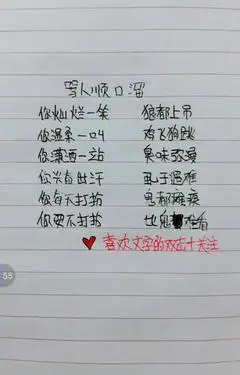 骂人顺口溜
你灿烂一笑 狼都上吊
你温柔一叫 鸡飞狗跳
你潇洒一站 臭味弥漫
你头直出汗 虱子遇难
你每天打扮 鬼都瘫痪
你要不打扮 比鬼难看
喜欢文字的双击十关注
55